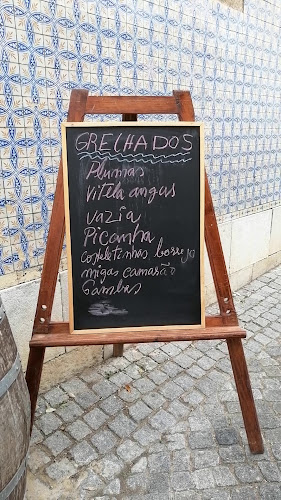 GRECHADOS
Plumas
Vitela angus
Vazia
Picanha
Costeletinhas borrego
migas camarão
Gambas